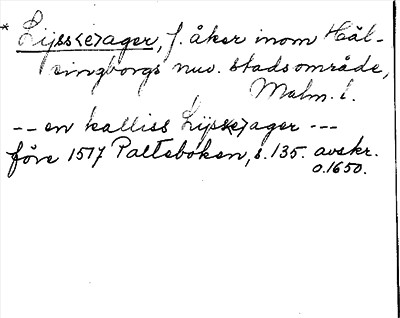 * Lijss<e>ager, f. åker inom Häl-
singborgs nuv. stadsområde,
Malm. l.
-- en kalliss Lijss<e>ager ---
före 1517 Palteboken, s. 135. avskr.
o. 1650.